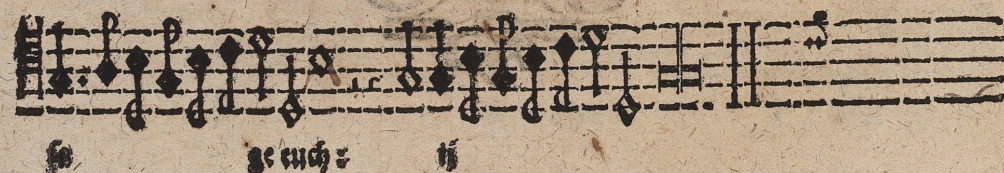 ſa ge euch : ij